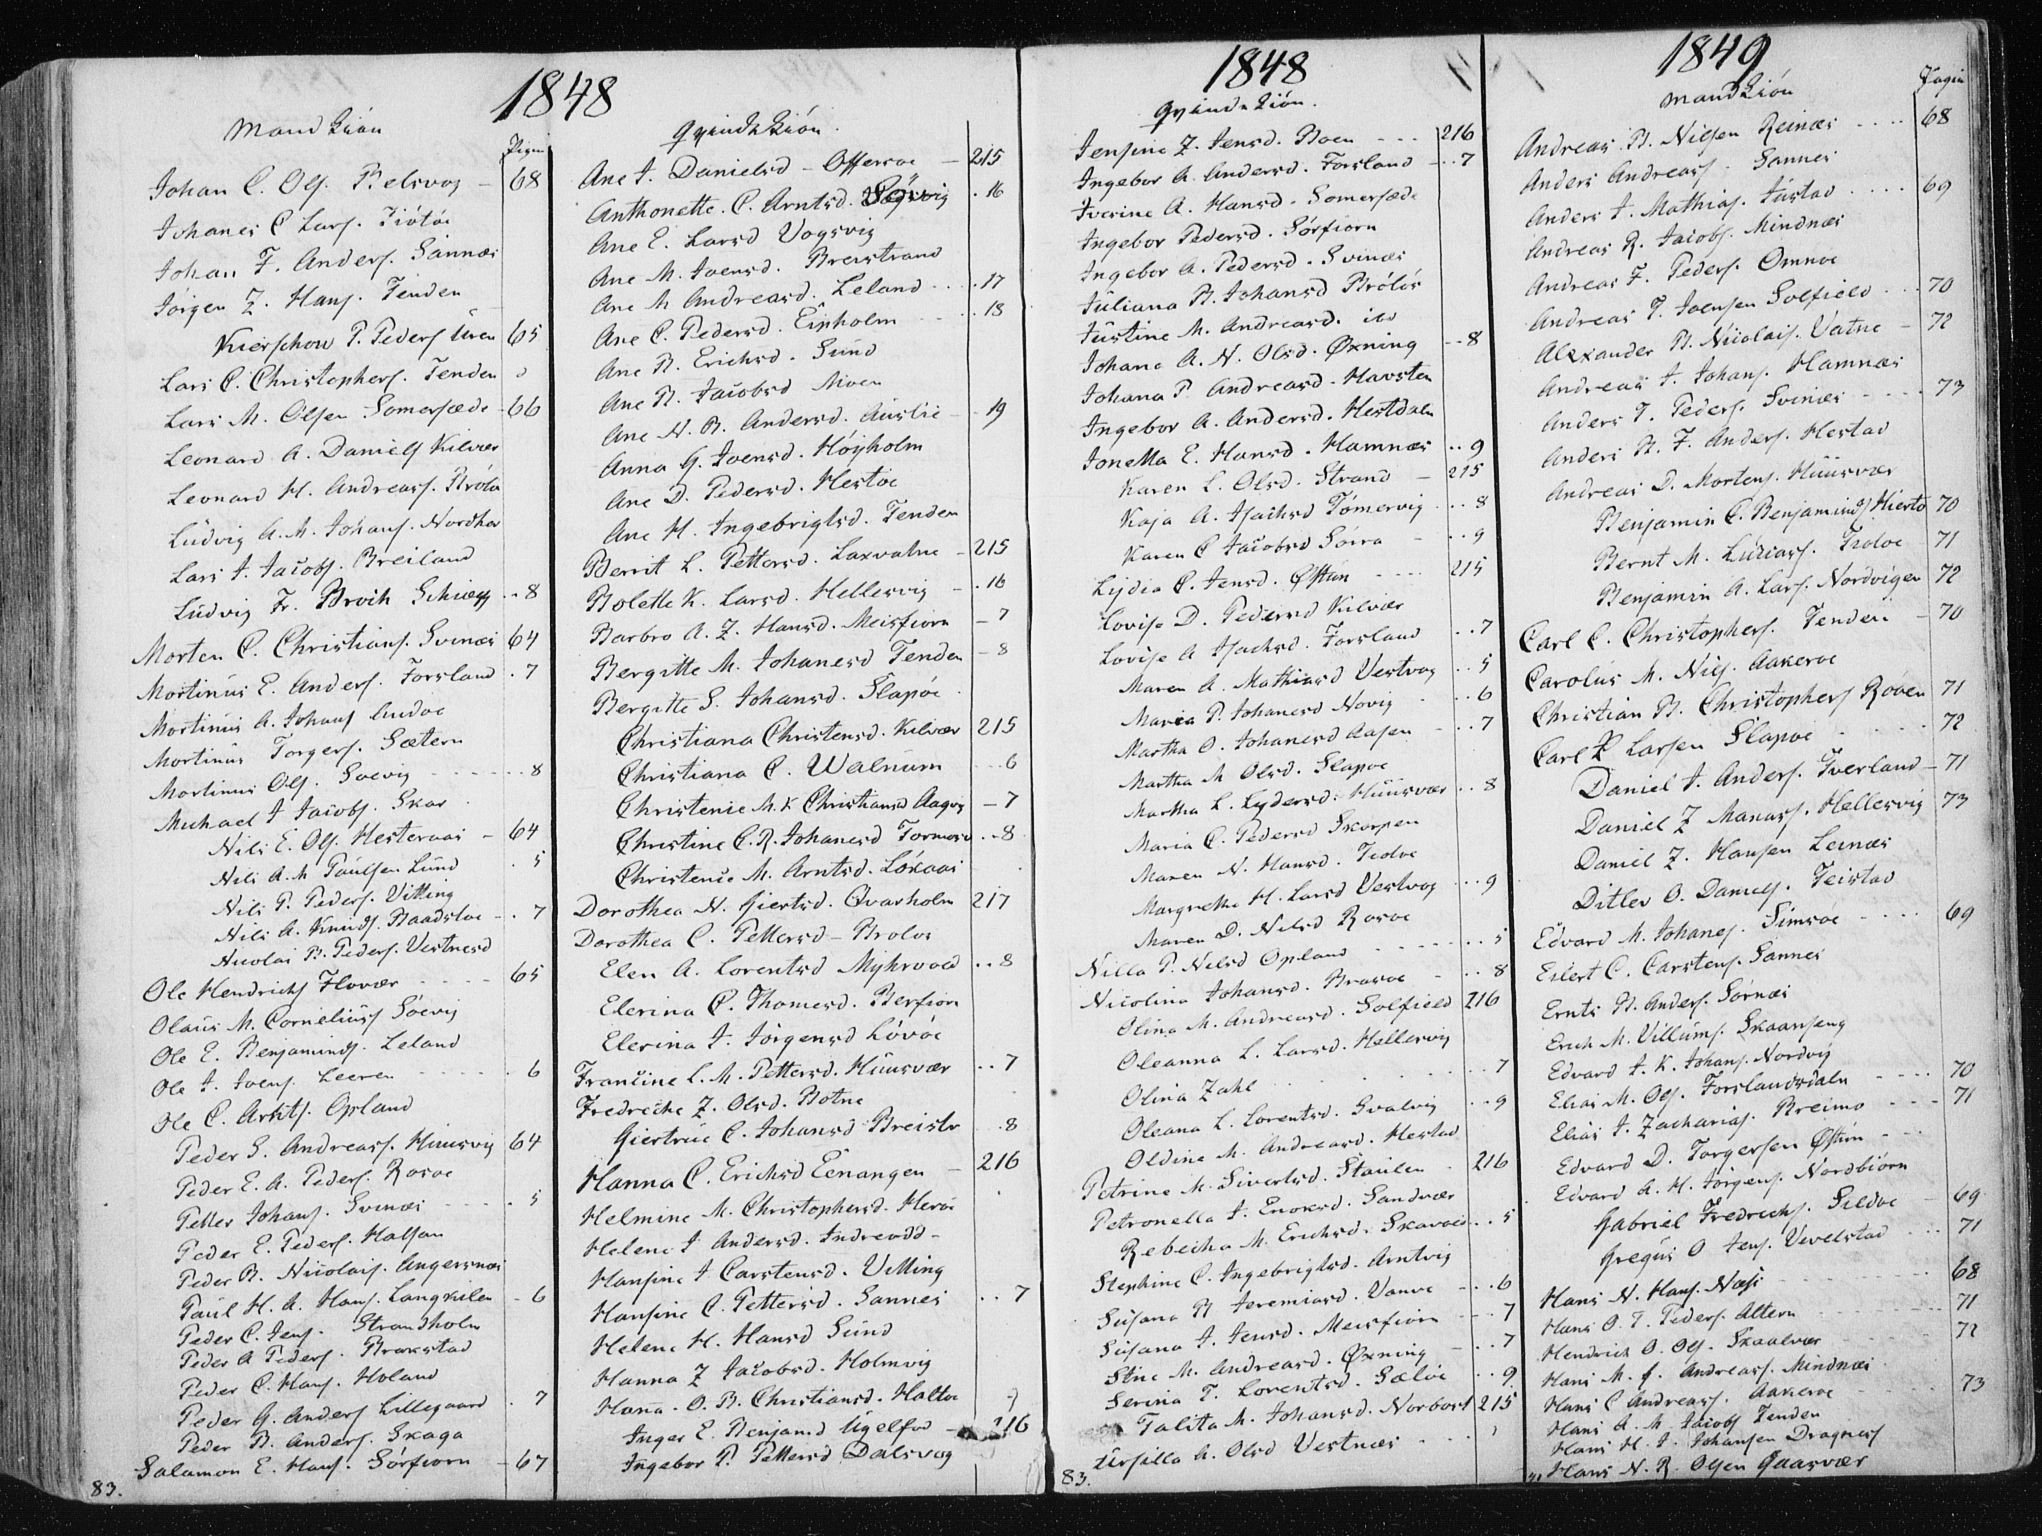 1848
Mandkiön
Pagin
Johan C. Ols. Belsvog - 68
Johanes C Lars. Tiötöe
Johan F. Anders. Sannæs
Jørgen Z. Hans. Tenden
Kierschow P. Peders Uren 65
Lars C. Christophers. Tenden
Lars M. Olsen Somersæde - 66
Leonard A. Daniels Kilvær
Leonard H. Andreass. Brölö
Ludvig A. M. Johans. Nordhor
Lars J. Jacobs. Breiland
Ludvig Fr. Broch Schieps .. 8
Morten C. Christians. Svinæs 64
Mortinus E. Anders. Forsland . 7
Mortinus A. Johans
Mortinus Torgers. Sætern
Mortinus Ols. Soevig ...... 8
Michael J Jacobs. Skar
Nils E. Ols. Hesteraas - 64
Nils A. M Paulsen Lund . 5
Nils P. Peders. Vitting
Nils A. Knuds. Baadsloe - . 7
Nicolai B. Peders. Vestnesd
Ole Hendrichs Flovær .... 65
Olaus M. Cornelius Söevig
Ole E. Benjamins. Leland
Ole J. Joens. Leeren ..... 6
Ole C. Arnts. Opland
Peder S. Andreass. Huusvig 64
Peder E. A. Peders. Rosoe
Petter Johans. Svinæs .... 5
Peder E. Peders. Halsan
Peder B. Nicolais. Angersnæs
Paul H. A. Hans. Langkilen - 6
Peder C. Jens. Strandholm
Peder A Peders. Brakstad
Peder C. Hans. Holand
Peder G. Anders Lillegaard . 7
Peder B. Anders. Skaga
Salamon E. Hans. Sörfiorn - 67
83.
Qvindekiön.
Ane J. Danielsd - Offersoe - 215
Anthonette. C. Arntsd. Søgvig . 16
Ane E. Larsd Vogsvig
Ane M. Joensd. Breistrand
Ane M Andreasd. Leland ... 17
Ane C. Pedersd. Eipholm ... 18
Ane B. Erichsd. Sund
Ane B. Jacobsd Moen
Ane N. B. Andersd. Auslie - 19
Anna G. Joensd. Höyholm
Ane D. Pedersd. Hestoe
Ane H. Ingebrigtsd. Tenden
Berrit L. Pettersd. Laxvatne - 215
Bolette K. Larsd. Hellesvig - . 16
Barbro A. Z. Hansd. Meisfiorn - 7
Bergitte M. Johanesd Tenden - 8
Bergitte S. Johansd. Slapöe .
Christiana Christensd. Kilvær 215
Christiana C. Walnum ... 6
Christenie M. K Christiansd Aagvig - 7
Christine C. R. Johanesd Formoe .. 8
Christenie M. Arntsd. Lökaas
Dorothea N. Giertsd. Qvarholm 217
Dorothea C. Pettersd - Broloe
Elen A. Lorentsd Myhrvold .. 8
Elerina C. Thomesd. Berfiorn
Elesina J. Jörgensd Lövöe
Francine L. M. Pettersd. Huusvær .. 7
Fredriche Z. Olsd. Botne
Giertrue C. Johansd Breistr . 8
Hanna C. Erichsd Eenangen - 216
Helmine M. Christophersd. Heröe
Helene J Andersd. Indreodd -
Hansine J Carstensd. Vitting
Hansine C. Pettersd. Sannes .. 7
Helene H. Hansd Sund
Hanna Z Jacobsd. Holmvig
Hana. O. B. Christiansd. Haltøe
Inger E. Benjamd Ugelfod - 216
Ingebor P. Pettersd Dalsvog
1848
Qvindekiön.
Jensine Z. Jensd. Boen ... 216
Ingebor A. Andersd. Forsland ... 7
Iverine A. Hansd. Somersæde
Ingebor Pedersd. Sörfiorn
Ingebor A. Pedersd. Svinæs
Juliana B. Johansd Brölös
Justine M. Andreasd. ibd
Johana A. N. Olsd. Øxning .. 8
Johana P. Andreasd. Havsten
Ingebor A. Andersd. Hestdalen
Jonetta E. Hansd. Hamnæs .. 9
Karen L. Olsd. Strand - 215
Kaja A. Isachsd Tömervig ... 8
Karen C Jacobsd Sörra - .. 9
Lydia C. Jensd. Østun .... 215
Lovise D. Pedersd Kilvær
Lovise A Isachsd. Forsland .. 7
Maren A. Mathiasd Vestvog .. 5
Maria P. Johanesd Novig . .. 6
Martha O. Johanesd Aasen ... 7
Martha M Olsd. Slapoe
Martha L. Lydersd. Huusvær .. 8
Maria C. Pedersd Skorpen
Maren N. Hansd. Trolve
Margrethe H. Larsd Vestvog ... 9
Maren D. Nilsd Rosoe
Nilla P. Nelsd Opland ..... 5
Nicolina Johansd. Brasoe - .. 8
Olina M. Andreasd. Solfield 216
Oleanna L. Larsd. Hellesvig
Olina Zahl ........ 7
Oleana L. Lorentsd. Svalvig .. 9
Oldine M. Andreasd. Hestad
Petrine M. Sivertsd. Staulen . 216
Petronella J. Enoksd. Sandvær
Rebecha M. Erichsd. Skavold .. 5
Stephine C. Ingebrigtsd. Arntvig
Susana B Jeremiasd. Vanve ... 6
Susana J. Jensd. Meisfiorn ... 7
Stine M. Andreasd. Øxning ... 7
Serina T. Lorentsd. Sælöe .. 9
Talita M. Johansd. Norbost 215
Ursilla A. Olsd Vestnæs
83.
1849
Mandkiön
Pagin
Andreas B. Nilsen Reinæs .... 68
Anders Andreass. Sannes
Anders J. Mathias. Justad .... 69
Andreas R. Jacobs. Mindnæs
Andreas F. Peders. Omnoe
Andreas T. Joensen Solfield ... 70
Alexander B. Nicolais. Vatne - 72
Andreas J. Johans. Hamnæs
Anders T. Peders. Svinæs .... 73
Anders B. F. Anders. Hestad
Andreas D. Mortens. Huusvær
Benjamin C. Benjamins Hiertö 70
Bernt M. Luciass. Trolve 71
Benjamin A. Lars. Nordvigen 72
Carl C. Christophers. Tenden - 70
Carolus M. Nils. Aakeroe
Christian B. Christophers Roben 71
Carl P Larsen Slapoe ..... 72
Daniel J. Anders. Tverland - 71
Daniel Z Manass. Hellesvig 73
Daniel Z. Hansen Leinæs
Ditlev O. Daniels. Teistad
Edvard M. Johanes. Simsøe .... 69
Eilert C. Carstens. Sannes
Ernts B. Anders. Sörnæs
Erich M. Villums. Skaanseng
Edvard J. K. Johans. Nordvig
Elias M. Ols. Forslandsdaln .... 70
Elias J. Zacharias. Breimo ... 71
Edvard D. Torgersen Østun ...
Edvard A. H. Jörgens. Nordbiörn
Gabriel Fredrichs. Sildoe - 69
Gregus O Jens. Vevelstad ... 71
Hans N. Hans. Næss ...... 68
Hans O. T. Peders. Altern ...... 71
Hendrich O. Ols. Skaalvær ..... 72
Hans M. J. Andreass. Mindnæs
Hans C Andreass. Aakeroe ..... 73
Hans A. M. Jacobs Tenden
Hans H. J. Johansen Dragnæs
Hans N. R. Olsen Gaasvær